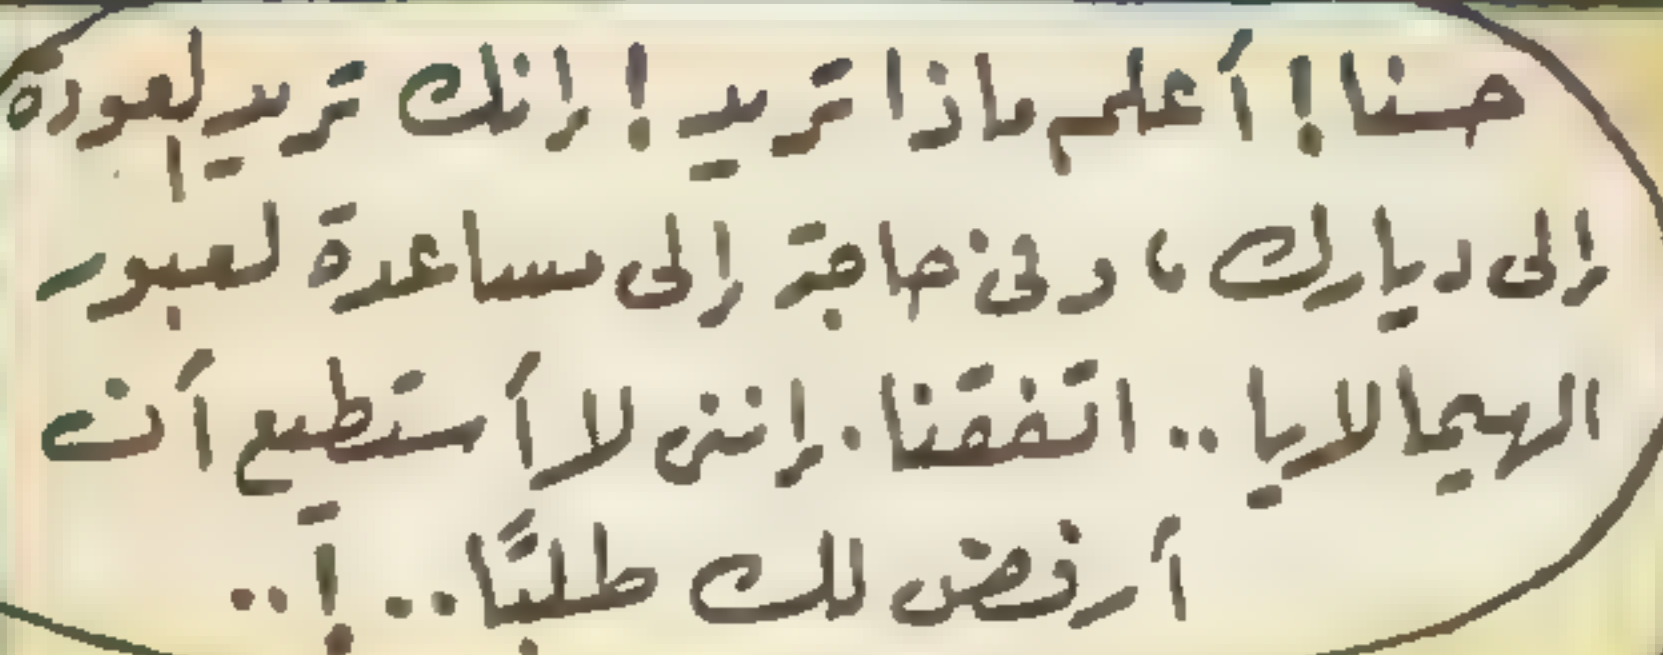 حسنا ! أعلم ماذا تريد ! إنك تريد العودة
إلى ديارك ، وفى حاجة إلى مساعدة لعبور
الهيمالايا .. اتفقنا . إننى لا أستطيع أن
أرفض لك طلبًا .. ! ..